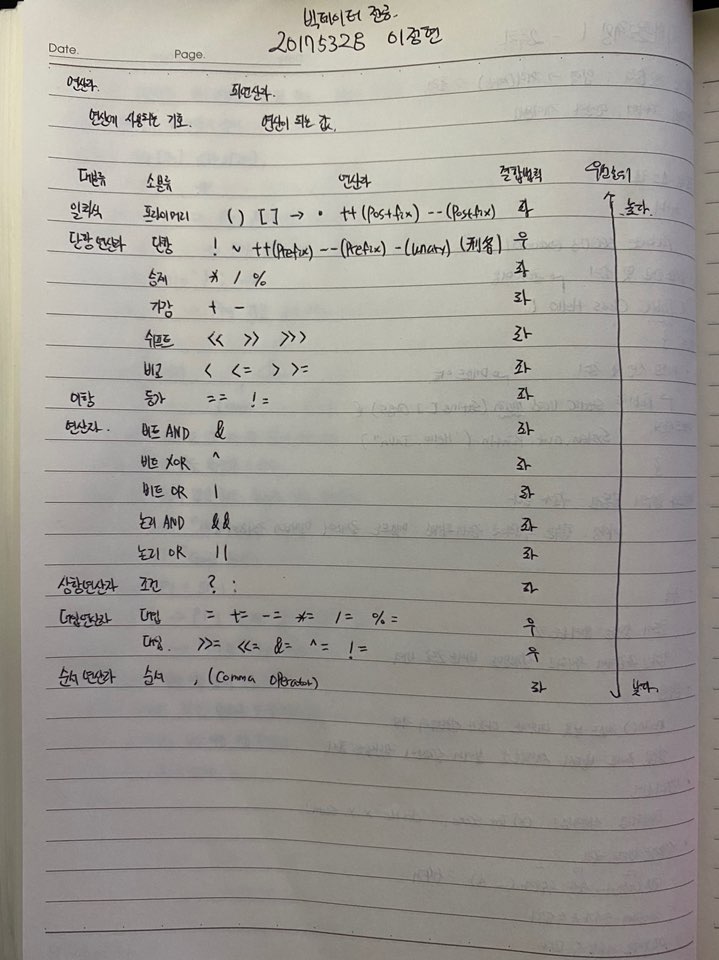 빅데이터 전공
20175328 이정현
Date. Page.
연산자. 피연산자.
연산에 사용되는 기호. 연산이 되는 값.
대분류 소분류 연산자 결합법칙 우선순위
일렉식 프라이머리 () [] → · ++(Postfix) --(Postfix) 좌 높다.
단항연산자 단항 ! ~ ++(Prefix) --(Prefix) -(unary) 우
승제 * / % 좌
가감 + - 좌
쉬프트 << >> >>> 좌
비교 < <= > >= 좌
이항 등가 == != 좌
연산자. 비트 AND & 좌
비트 XOR ^ 좌
비트 OR | 좌
논리 AND && 좌
논리 OR || 좌
삼항연산자 조건 ? : 좌
대입연산자 대입 = += -= *= /= %= 우
대입. >>= <<= &= ^= != 우
순서연산자 순서 , (Comma operator) 좌 낮다.